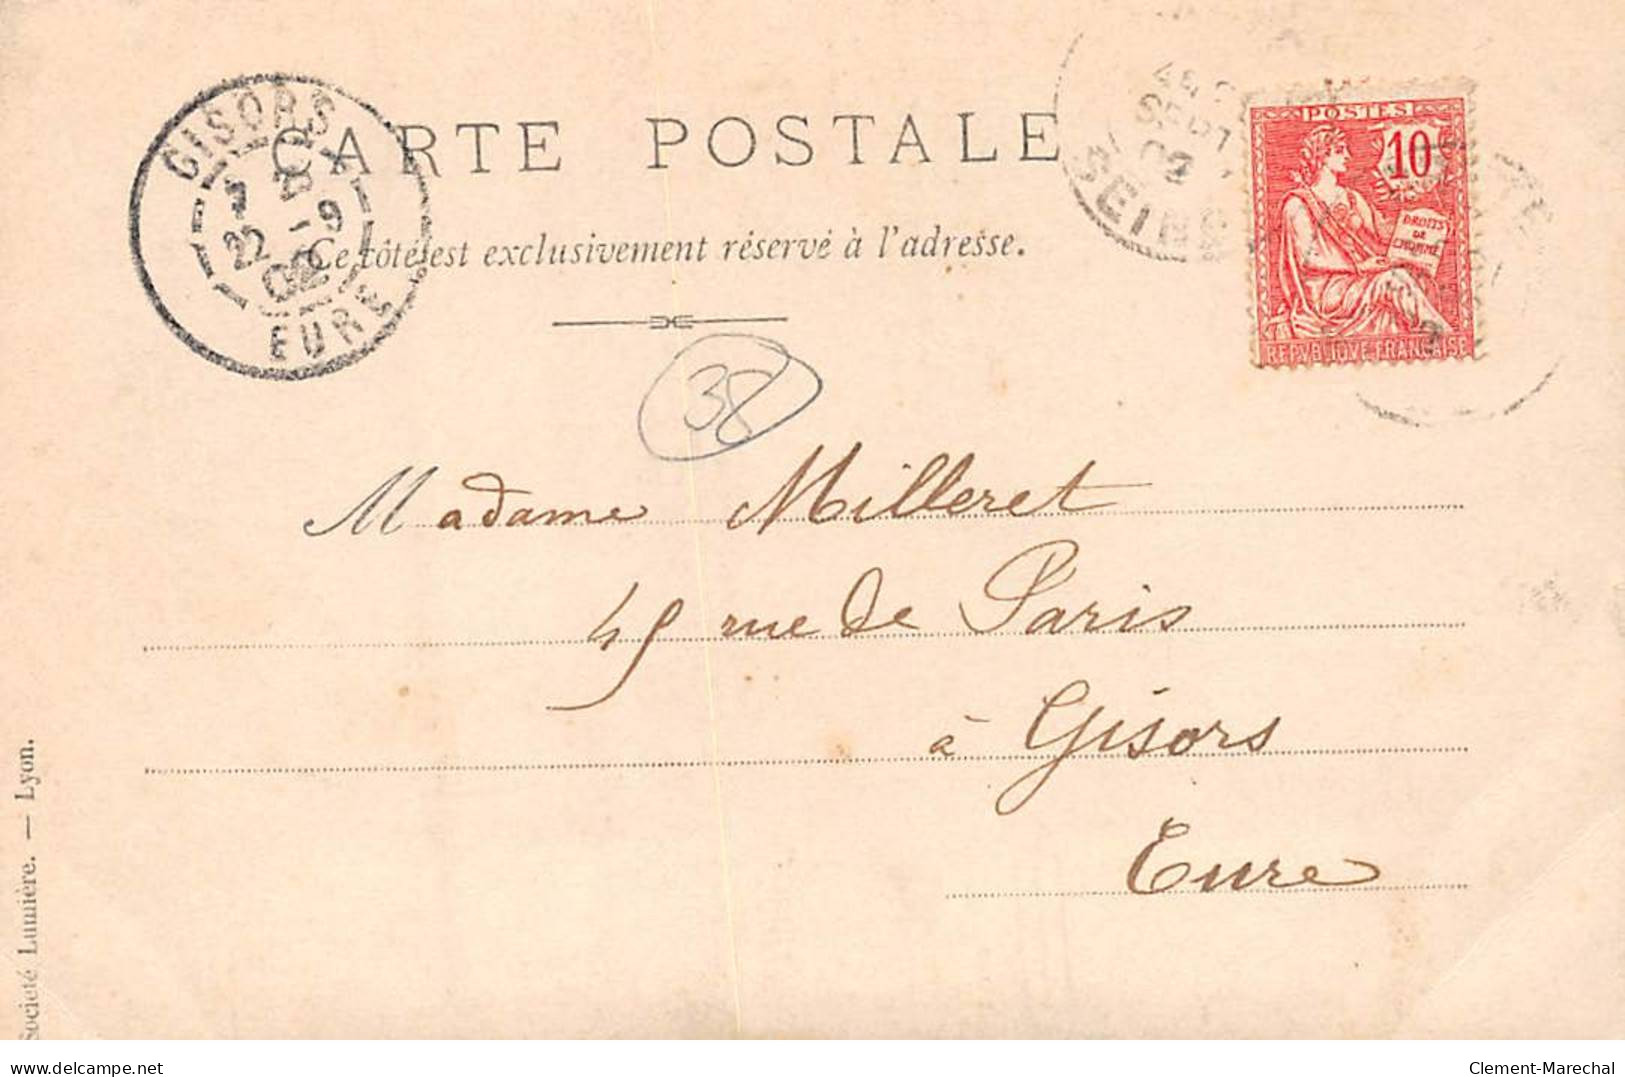 CARTE POSTALE
Ce côté est exclusivement réservé à l'adresse.
GISORS
22 -9
02
EURE
SEINE
02
POSTES
10
DROITS
DE
L'HOMME
REPVBLIQVE FRANÇAISE
38
Madame Milleret
45 rue de Paris
à Gisors
Eure
Société Lumière. — Lyon.
delcampe.net
Clement-Marechal